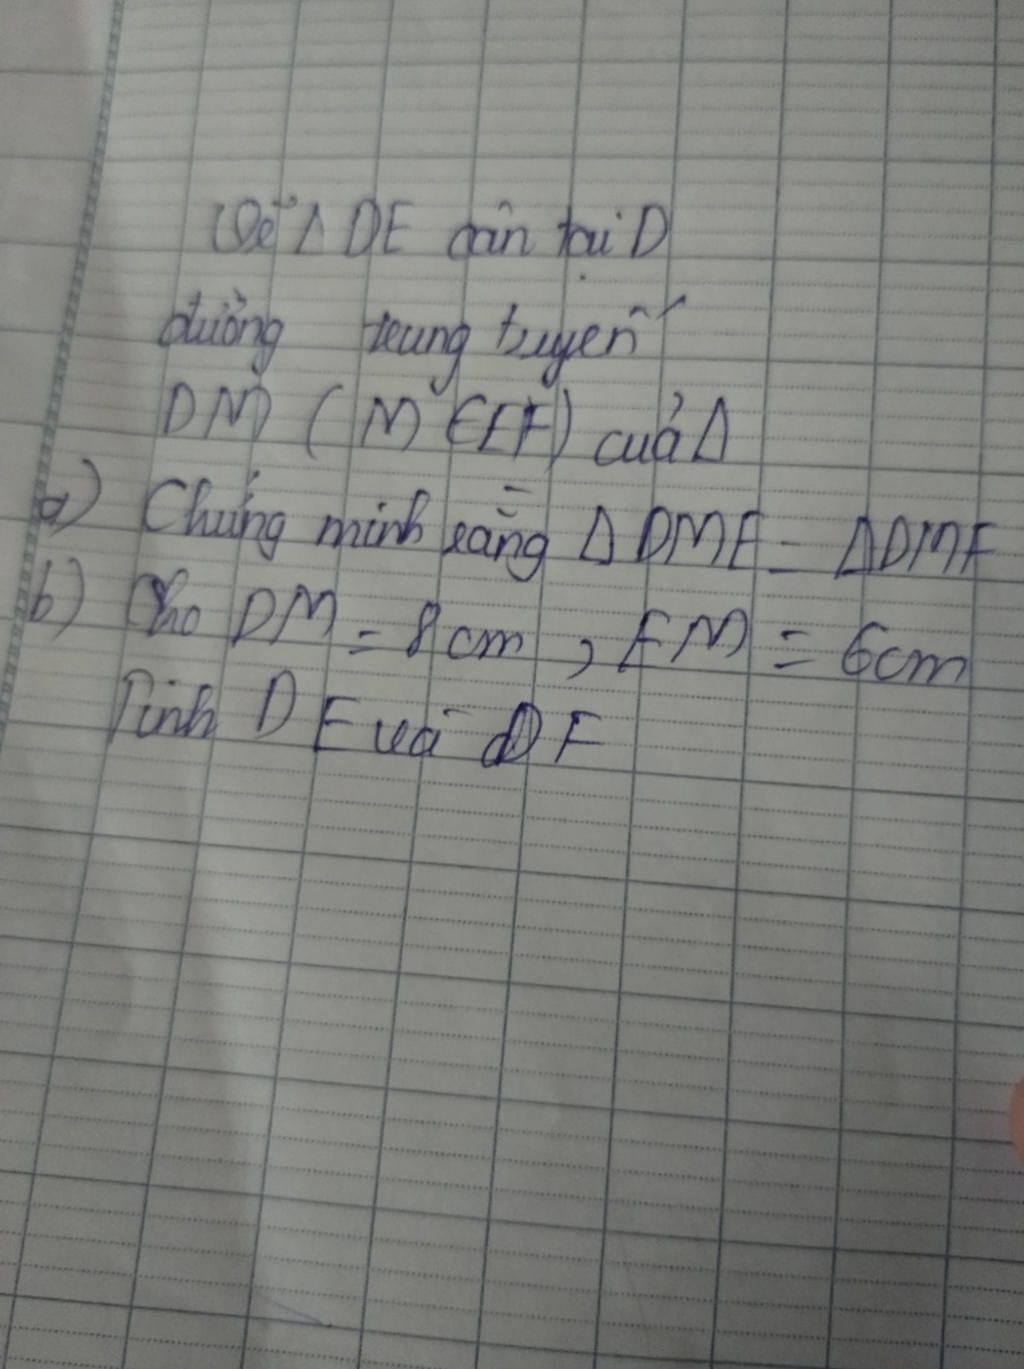 Vẽ Δ DE cân tại D
đường trung tuyến
DM (M ∈ EF) của Δ
a) Chứng minh rằng Δ DME = ΔDMF
b) Cho DM = 8cm, EM = 6cm
Tính DE và DF